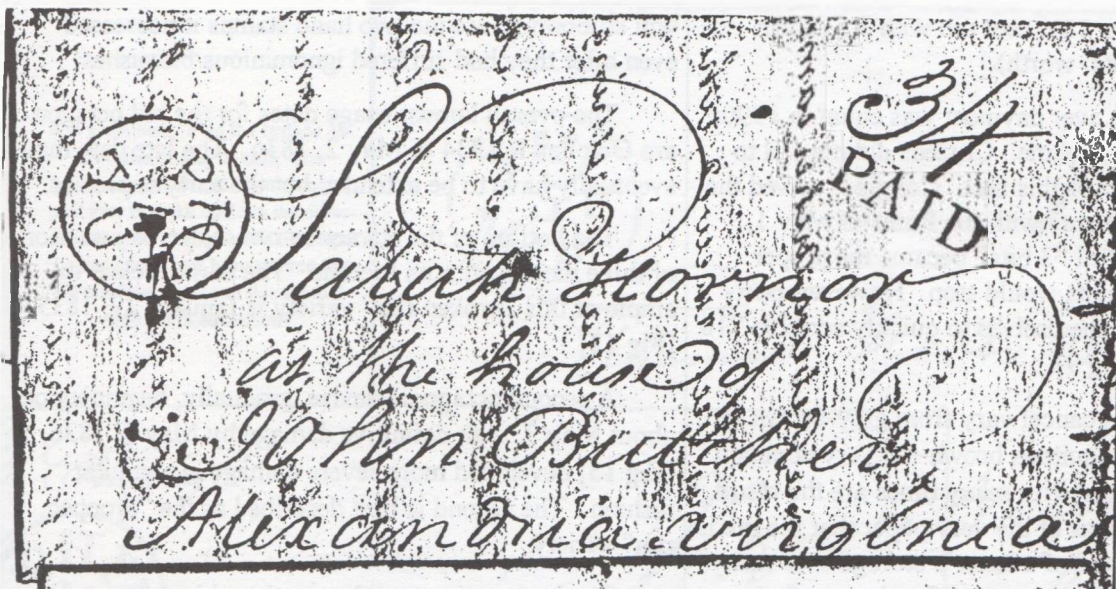 34
PAID
Sarah Hornor
at the house of
John Buttcher
Alexandria virginia